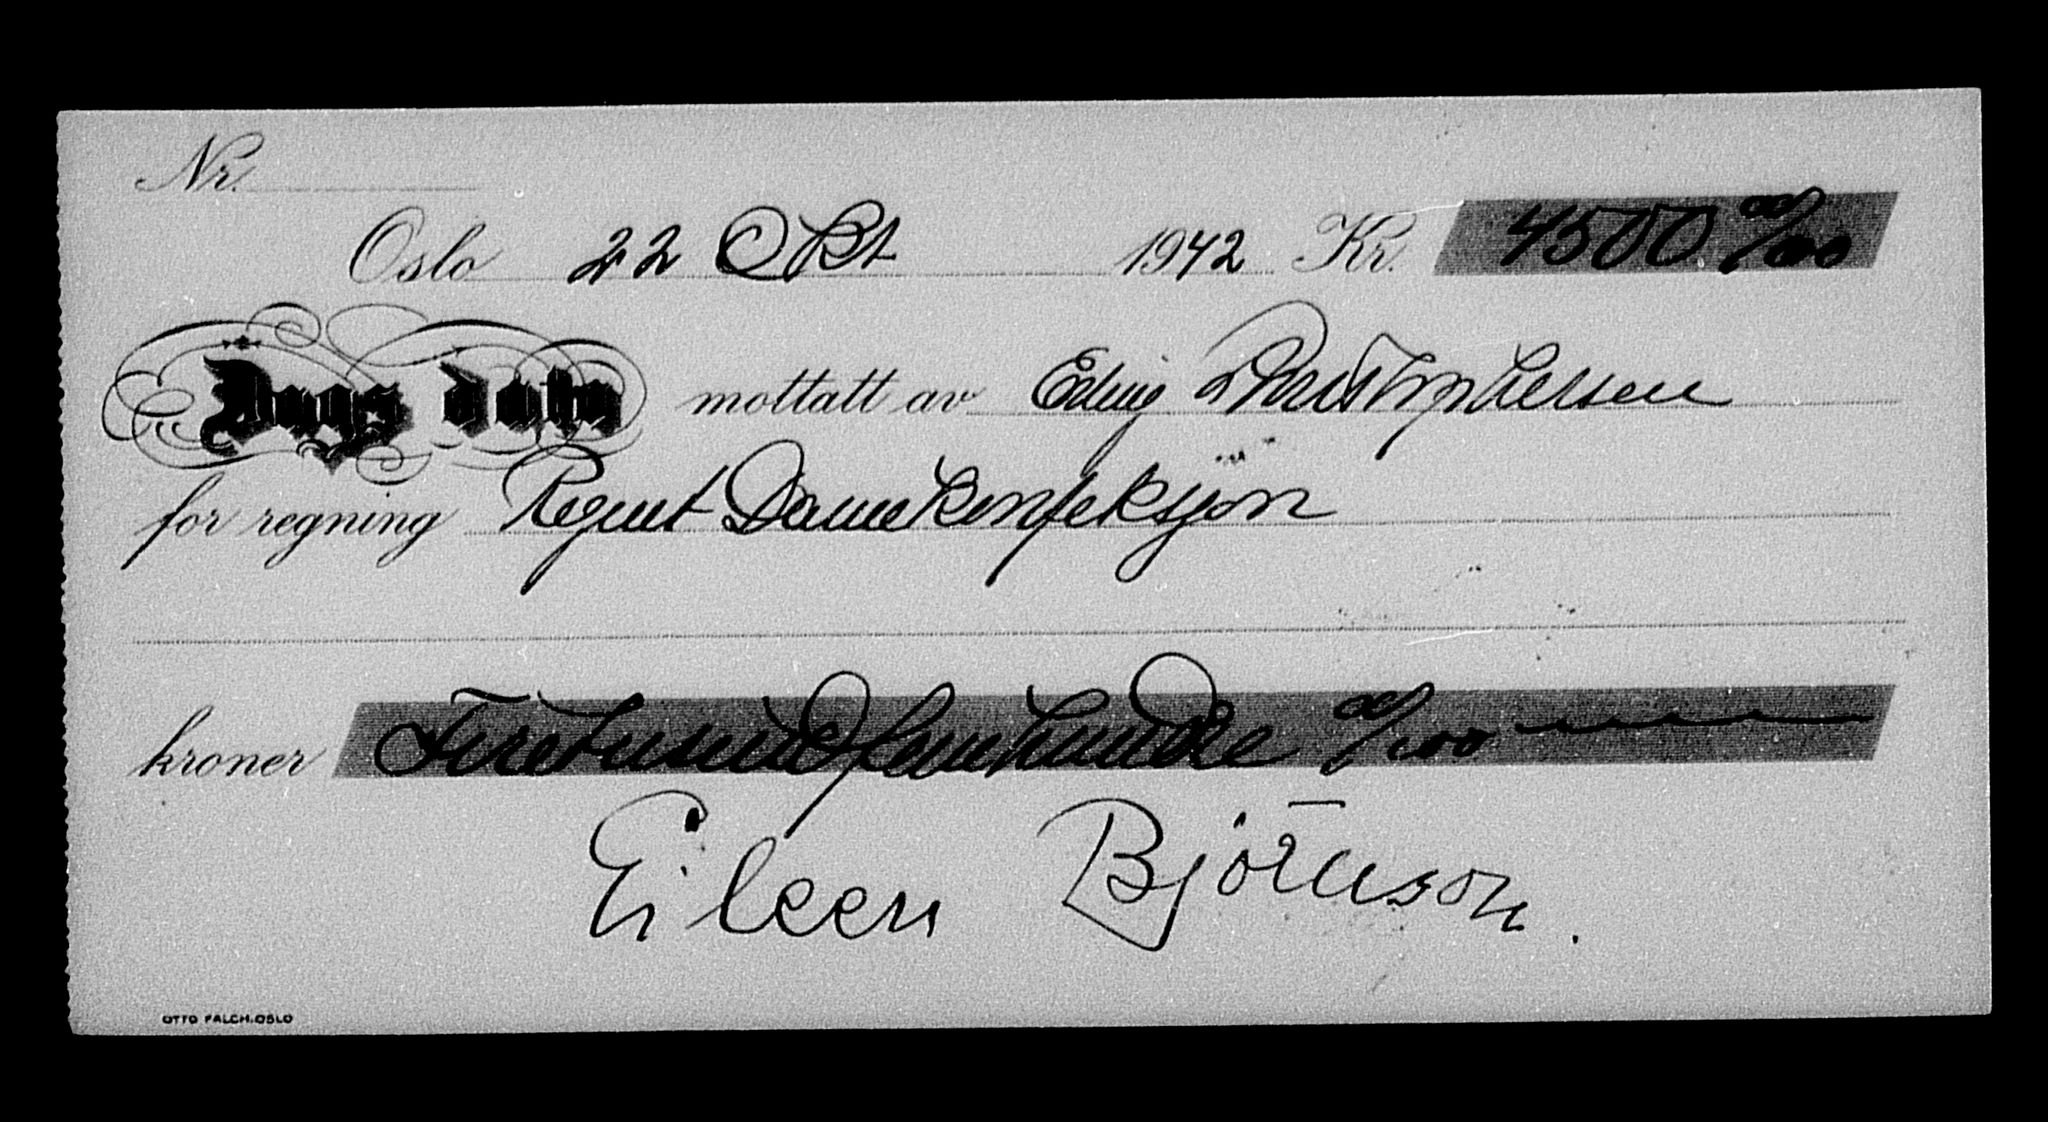 Nr.
Oslo 22 Okt 1942 Kr. 4500 00/100
Dags dato mottatt av Christophersen
for regning Regent Damekonfeksjon
kroner Firetusenfemhundre 00/100
Eileen Björnson.
OTTO FALCH. OSLO